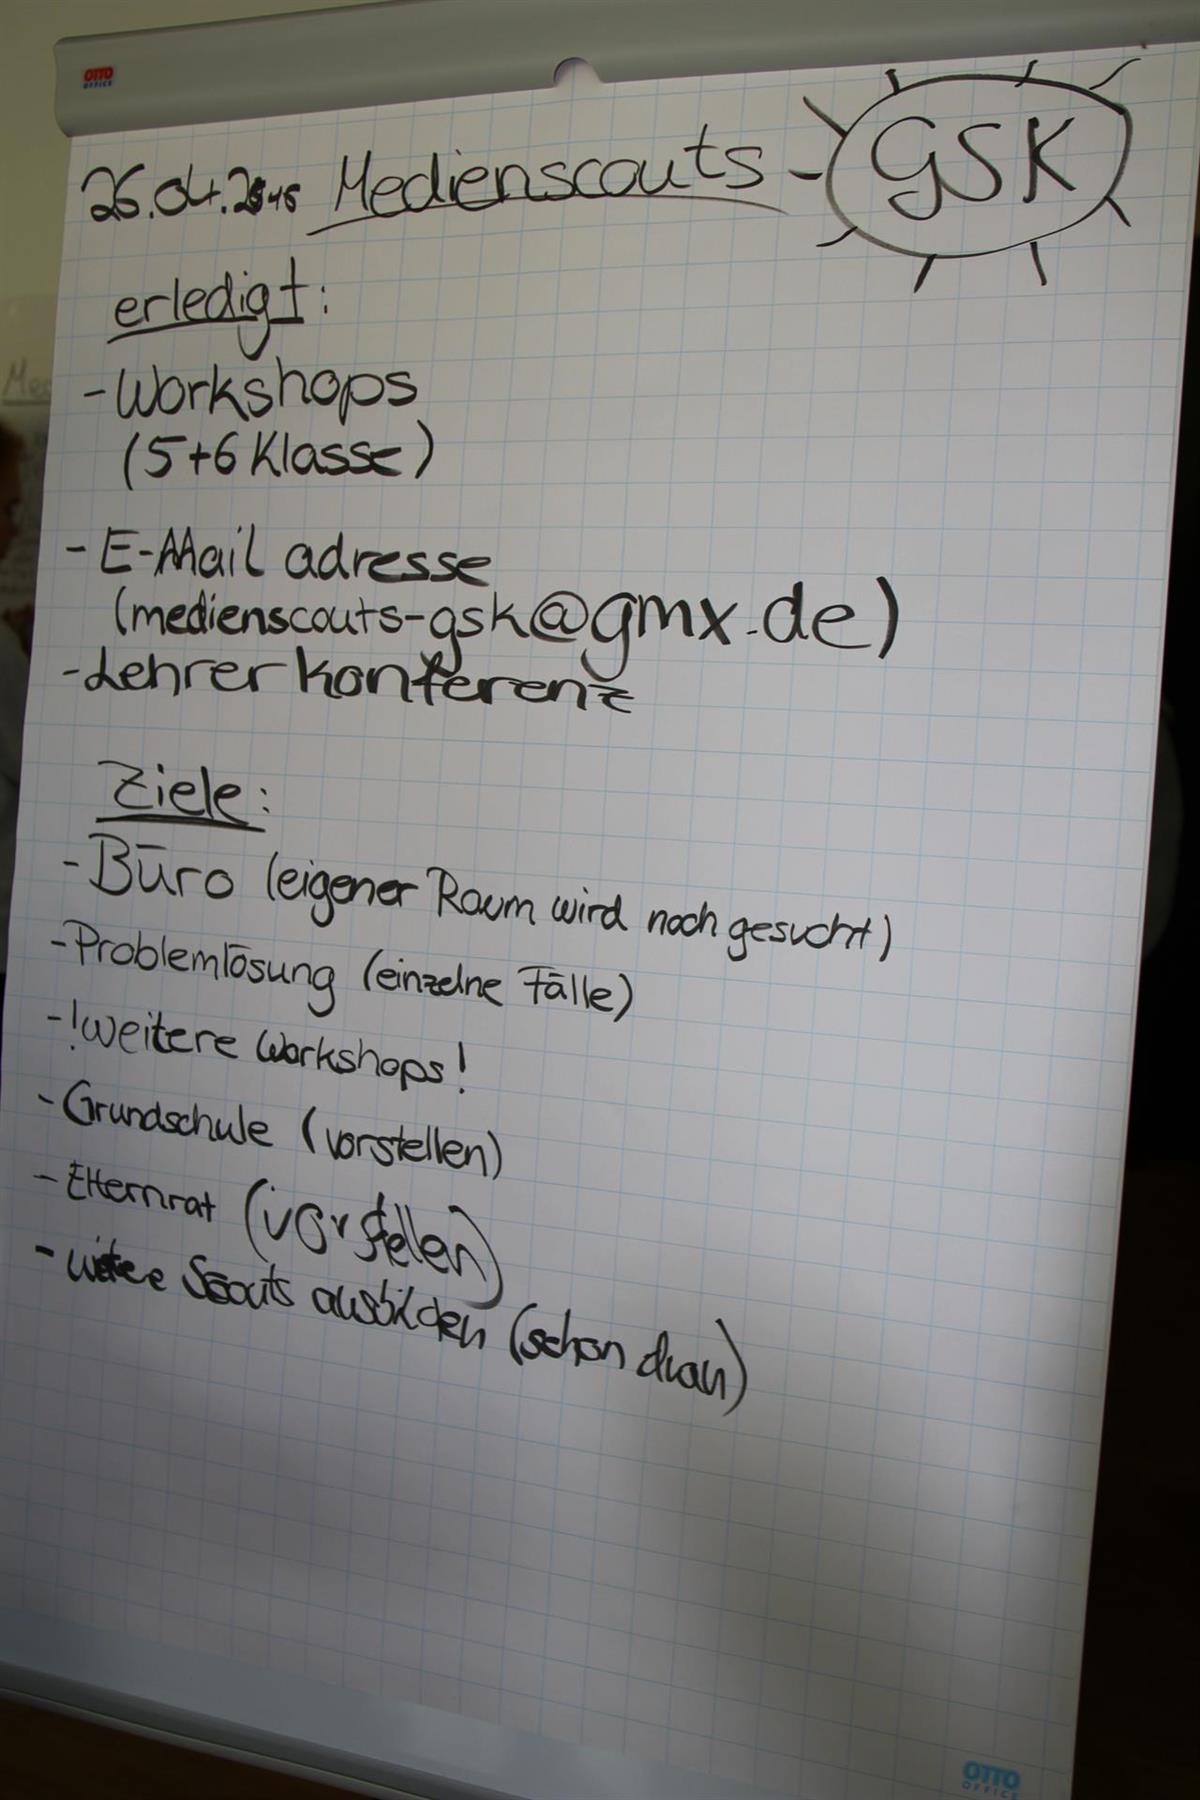 OTTO
OFFICE
26.04. Medienscouts - GSK
erledigt:
- Workshops
(5+6 Klasse)
- E-Mail adresse
(medienscouts-gsk@gmx.de)
- Lehrerkonferenz
Ziele:
- Büro (eigener Raum wird noch gesucht)
- Problemlösung (einzelne Fälle)
- !weitere Workshops!
- Grundschule (vorstellen)
- Elternrat (vorstellen)
- weitere Scouts ausbilden (schon dran)
OTTO
OFFICE